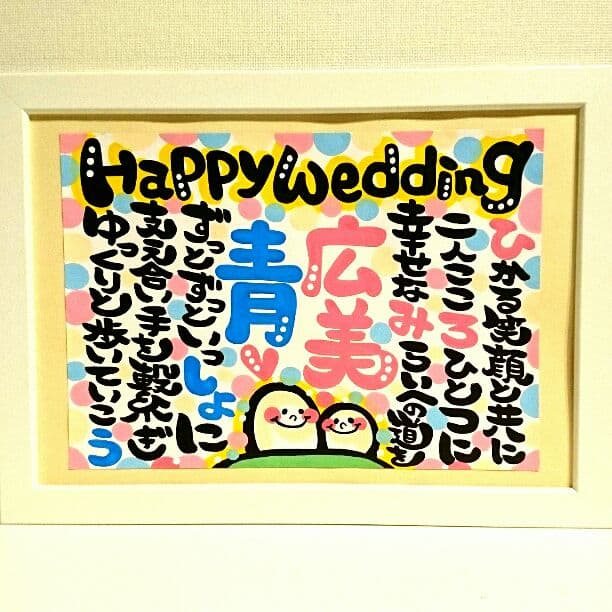 Happy Wedding
ひかる笑顔と共に
二人こころひとつに
幸せなみらいへの道を
広美
青
ずっとずっといっしょに
支え合い手を繋ぎ
ゆっくりと歩いていこう